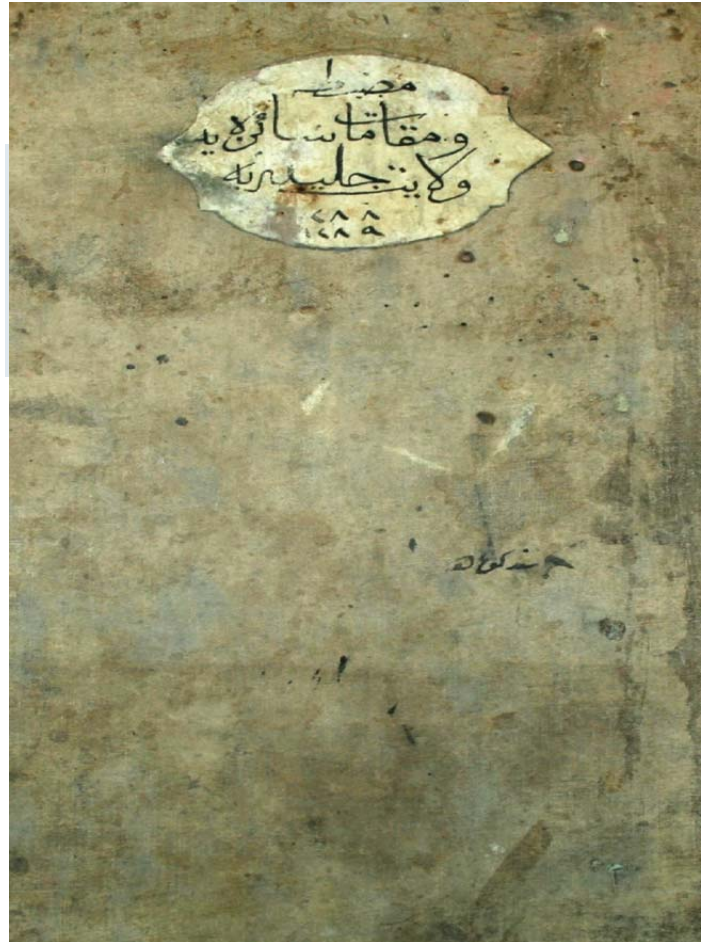 مضبطه
و مقامات سائره يه
ولايت جليله يه
٢٨٨
١٢٨٩